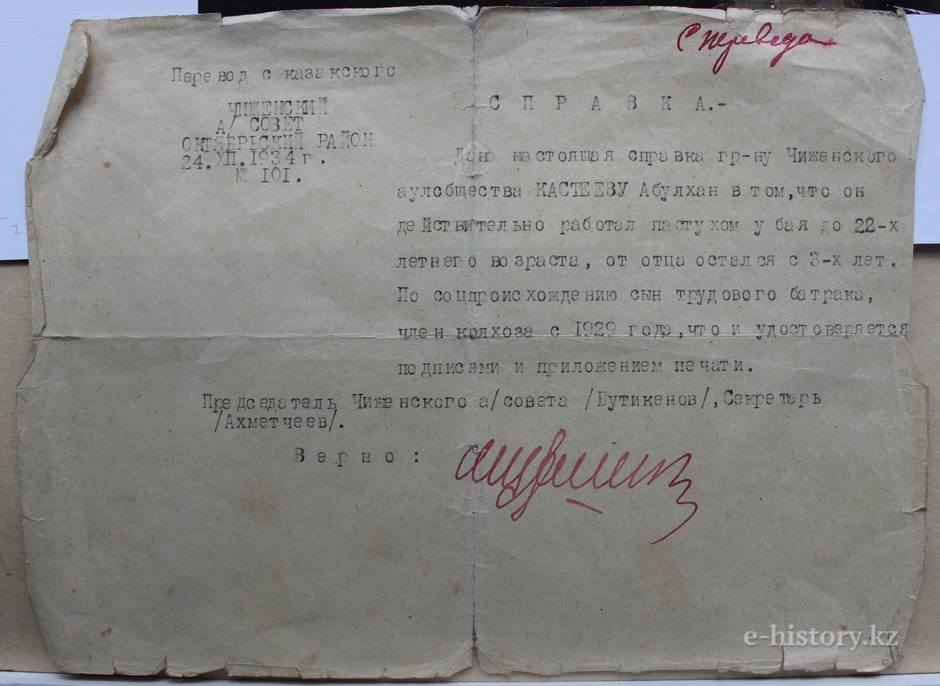 С перевода
Перевод с казакского
ЧИЖЕНСКИЙ
А/ СОВЕТ
ОКТЯБРЬСКИЙ РАЙОН
24.XII.1934 г.
№ 101.
С П Р А В К А.-
Дана настоящая справка гр-ну Чиженского
аулобщества КАСТЕЕВУ Абулхан в том,что он
действительно работал пастухом у бая до 22-х
летнего возраста, от отца остался с 3-х лет.
По соцпроисхождению сын трудового батрака,
член кляхоза с 1929 года,что и удостоверяется
подписями и приложением печати.
Председатель Чиженского а/совета /Бутикенов/,Секретарь
/Ахметчеев/.
В е р н о :
e-history.kz